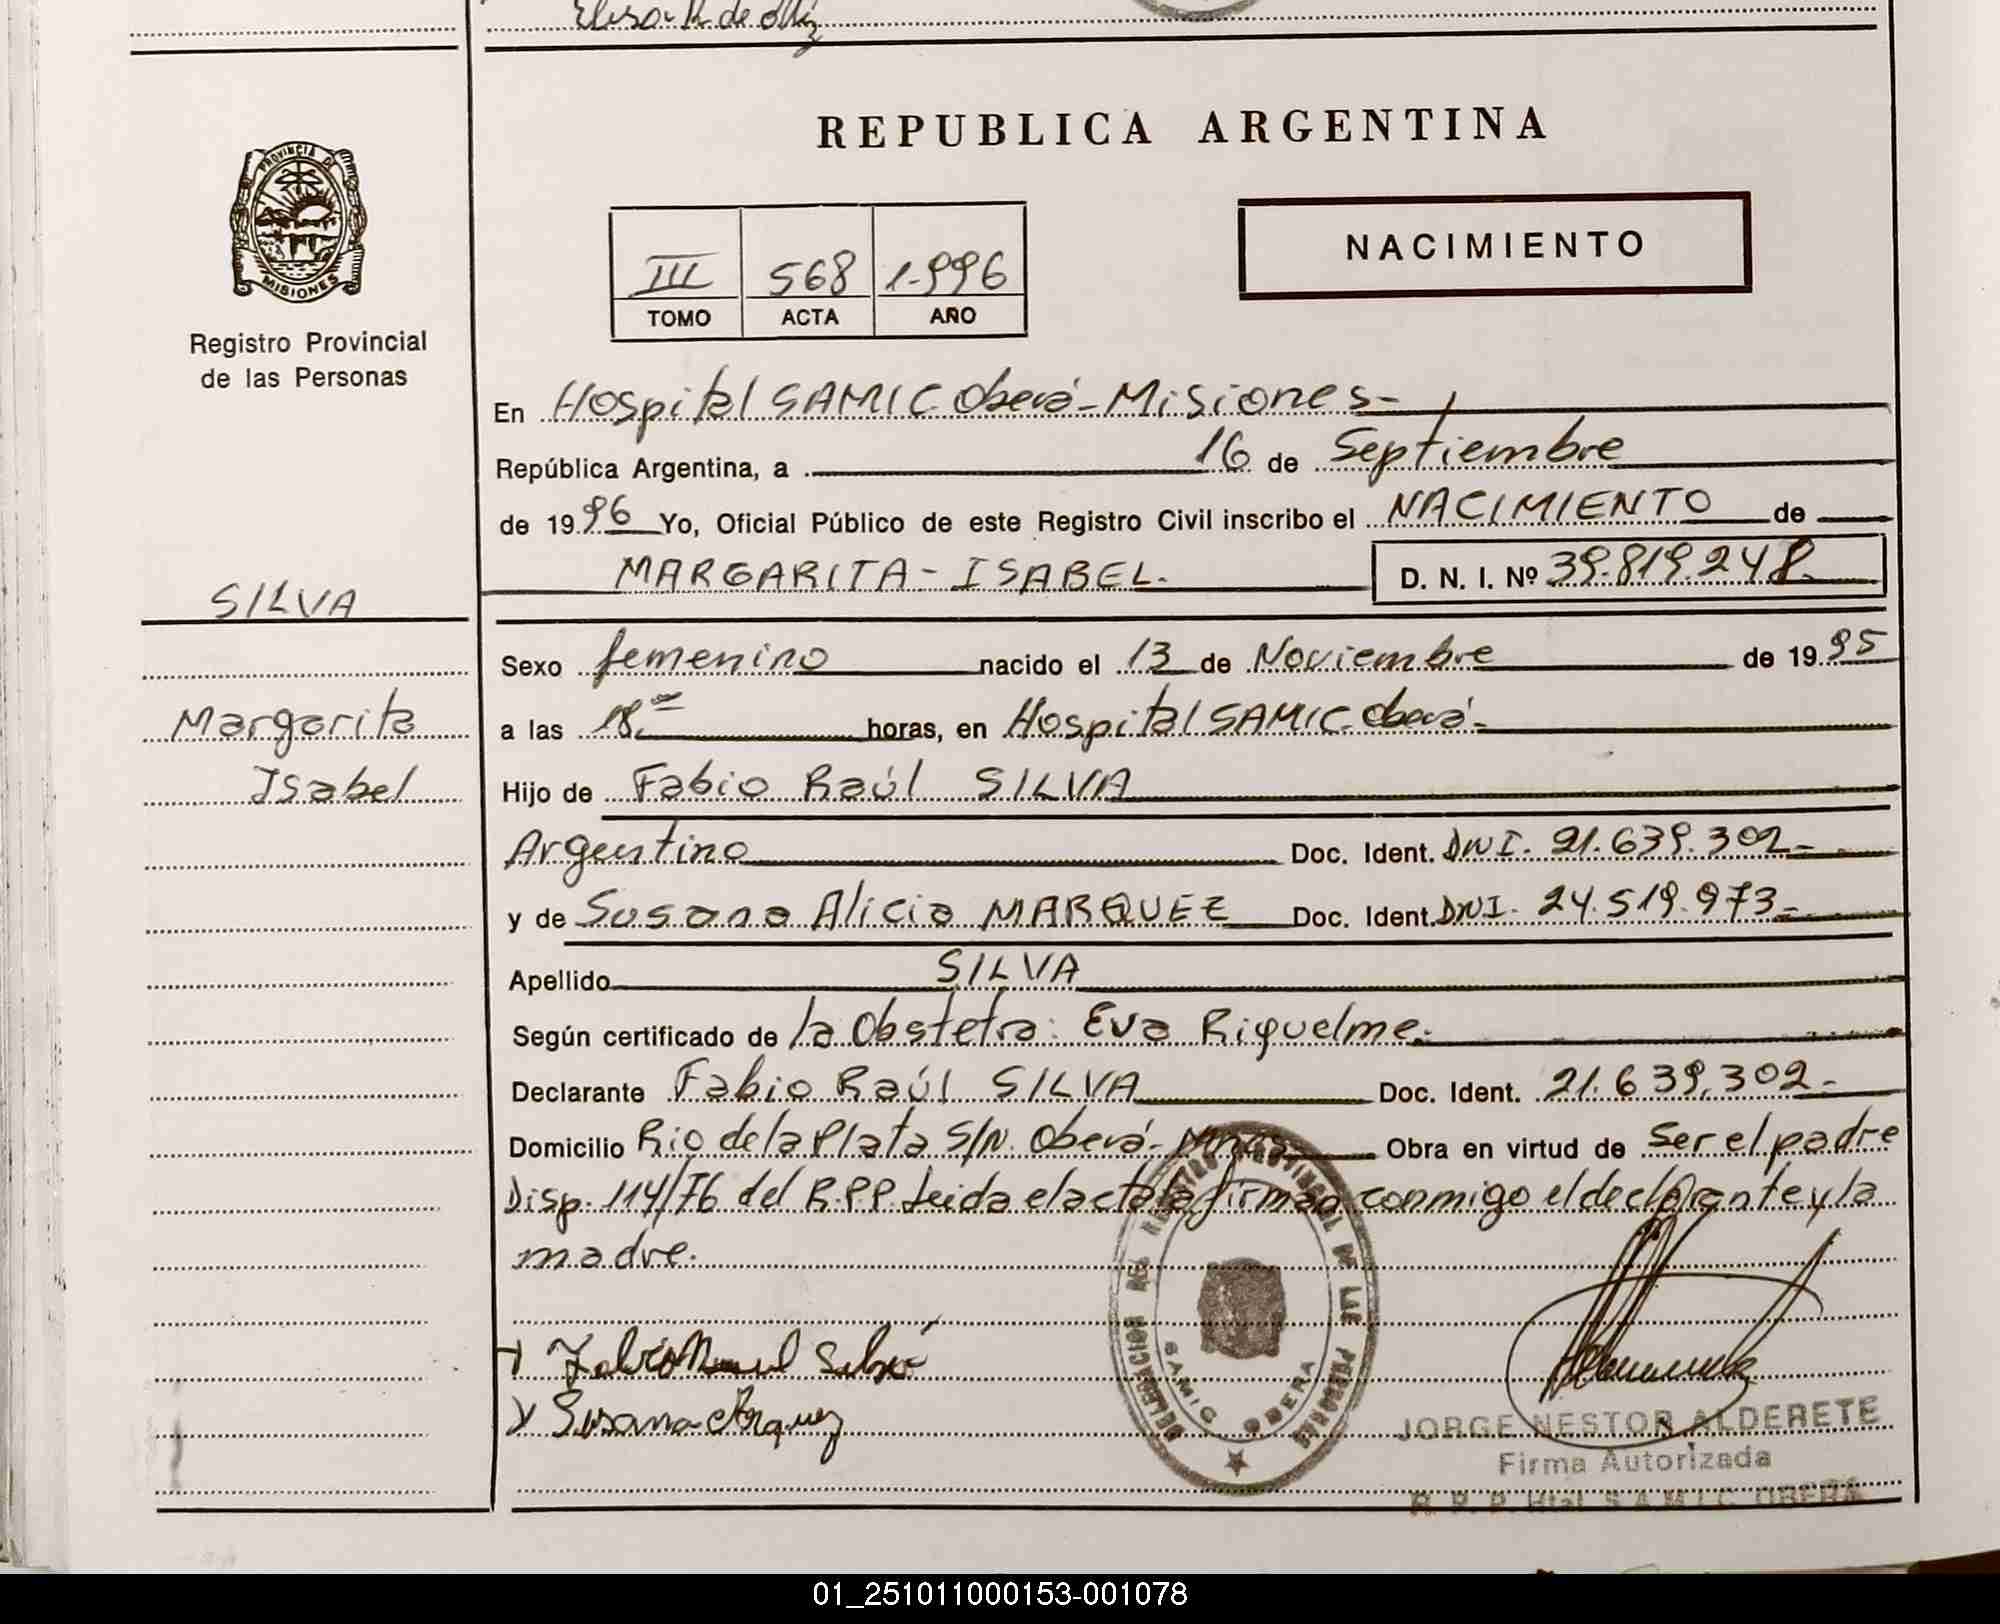 Elisa R. de
REPUBLICA ARGENTINA
PROVINCIA DE
MISIONES
Registro Provincial
de las Personas
III 568 1.996
TOMO ACTA AÑO
NACIMIENTO
En Hospital SAMIC Oberá - Misiones -
República Argentina, a 16 de Septiembre
de 1996 Yo, Oficial Público de este Registro Civil inscribo el NACIMIENTO de
MARGARITA - ISABEL. D. N. I. Nº 39.819.248.
SILVA
Margarita
Isabel
Sexo femenino nacido el 13 de Noviembre de 1995
a las 18. horas, en Hospital SAMIC Oberá -
Hijo de Fabio Raúl SILVA
Argentino Doc. Ident. DNI. 21.639.302 -
y de Susana Alicia MARQUEZ Doc. Ident. DNI. 24.519.973 -
Apellido SILVA
Según certificado de la Obstetra: Eva Riquelme.
Declarante Fabio Raúl SILVA Doc. Ident. 21.639.302 -
Domicilio Rio de la Plata S/N. Oberá - Mnes Obra en virtud de ser el padre
Disp. 114/76 del R.P.P. Leida el acta la firman conmigo el declarante y la
madre.
DELEGACION DEL REGISTRO PROVINCIAL DE LAS PERSONAS
SAMIC OBERA
Susana Marquez
JORGE NESTOR ALDERETE
Firma Autorizada
R. P. P. Htal. S.A.M.I.C. OBERA
01_251011000153-001078